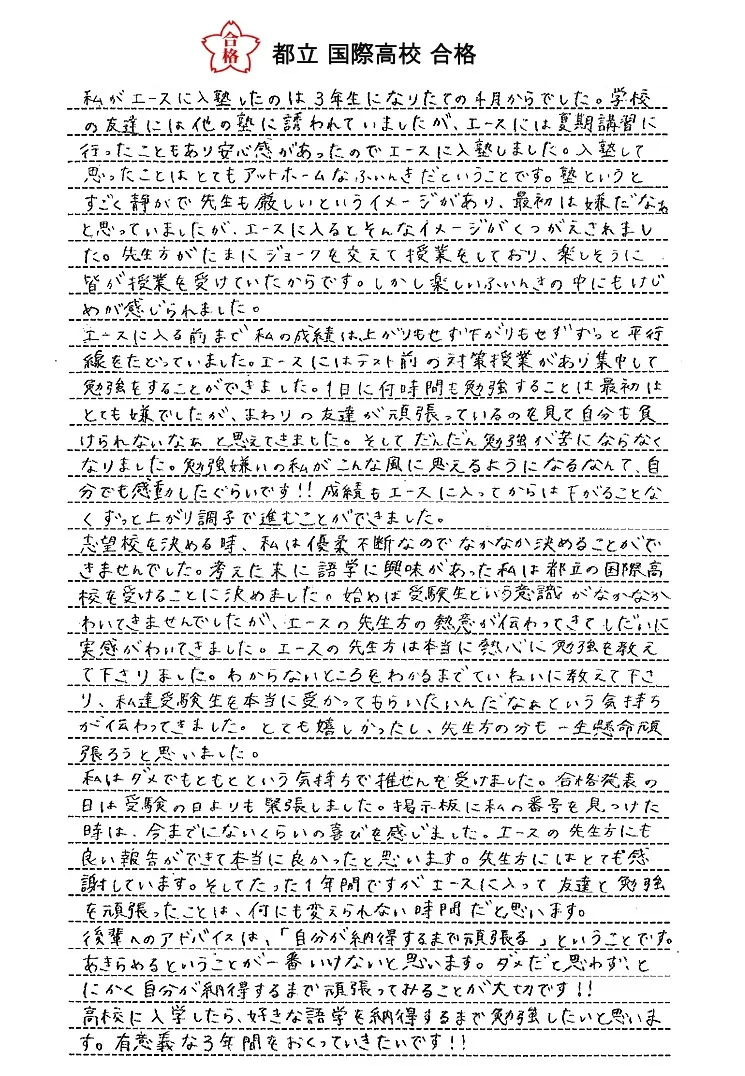 合格
都立 国際高校 合格
私がエースに入塾したのは3年生になりたての4月からでした。学校
の友達には他の塾に誘われていましたが、エースには夏期講習に
行ったこともあり安心感があったのでエースに入塾しました。入塾して
思ったことはとてもアットホームなふいんきだということです。塾というと
すごく静かで先生も厳しいというイメージがあり、最初は嫌だなぁ
と思っていましたが、エースに入るとそんなイメージがくつがえされまし
た。先生方がたまにジョークを交えて授業をしており、楽しそうに
皆が授業を受けていたからです。しかし楽しいふいんきの中にもけじ
めが感じられました。
エースに入る前まで私の成績は上がりもせず下がりもせずずっと平行
線をたどっていました。エースにはテスト前の対策授業があり集中して
勉強をすることができました。1日に何時間も勉強することは最初は
とても嫌でしたが、まわりの友達が頑張っているのを見て自分も負
けられないなぁと思えてきました。そしてだんだん勉強が苦にならなく
なりました。勉強嫌いの私がこんな風に思えるようになるなんて、自
分でも感動したぐらいです!!成績もエースに入ってからは下がることな
くずっと上がり調子で進むことができました。
志望校を決める時、私は優柔不断なのでなかなか決めることがで
きませんでした。考えた末に語学に興味があった私は都立の国際高
校を受けることに決めました。始めは受験生という意識がなかなか
わいてきませんでしたが、エースの先生方の熱意が伝わってきてしだいに
実感がわいてきました。エースの先生方は本当に熱心に勉強を教え
て下さりました。わからないところをわかるまでていねいに教えて下さ
り、私達受験生を本当に受かってもらいたいんだなぁという気持ち
が伝わってきました。とても嬉しかったし、先生方の分も一生懸命頑
張ろうと思いました。
私はダメでもともとという気持ちで推せんを受けました。合格発表の
日は受験の日よりも緊張しました。掲示板に私の番号を見つけた
時は、今までにないくらいの喜びを感じました。エースの先生方にも
良い報告ができて本当に良かったと思います。先生方にはとても感
謝しています。そしてたった1年間ですがエースに入って友達と勉強
を頑張ったことは、何にも変えられない時間だと思います。
後輩へのアドバイスは、「自分が納得するまで頑張る」ということです。
あきらめるということが一番いけないと思います。ダメだと思わず、と
にかく自分が納得するまで頑張ってみることが大切です!!
高校に入学したら、好きな語学を納得するまで勉強したいと思いま
す。有意義な3年間をおくっていきたいです!!